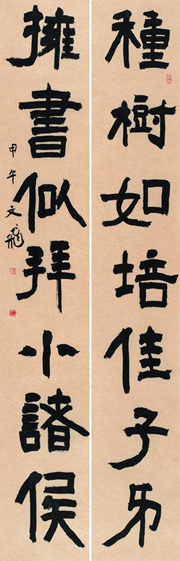 種樹如培佳子弟
擁書似拜小諸侯
甲午文飛